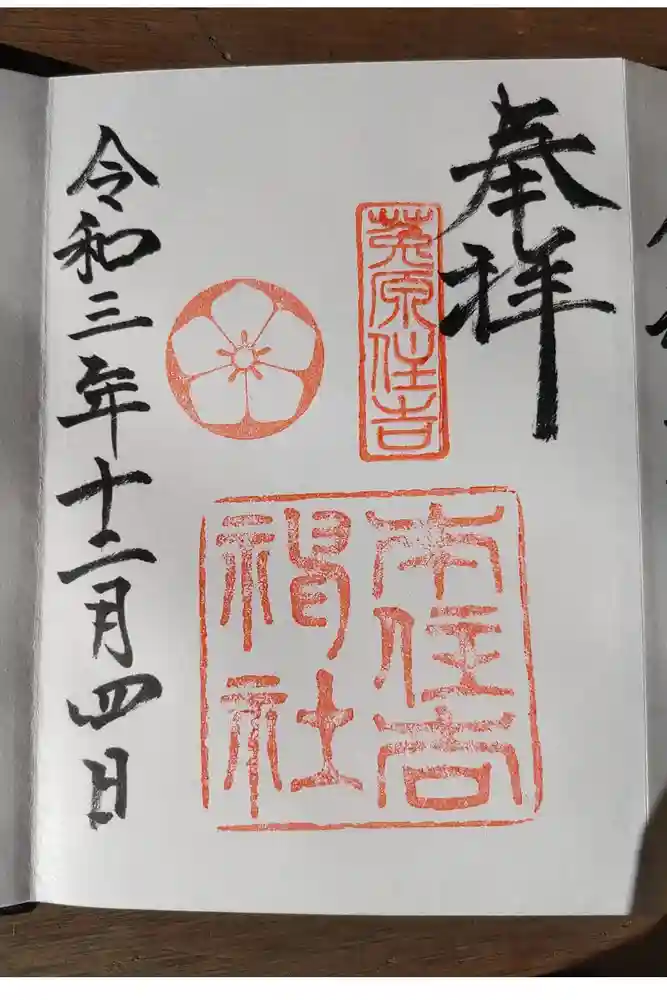 奉拝
菟原住吉
本住吉
神社
令和三年十二月四日